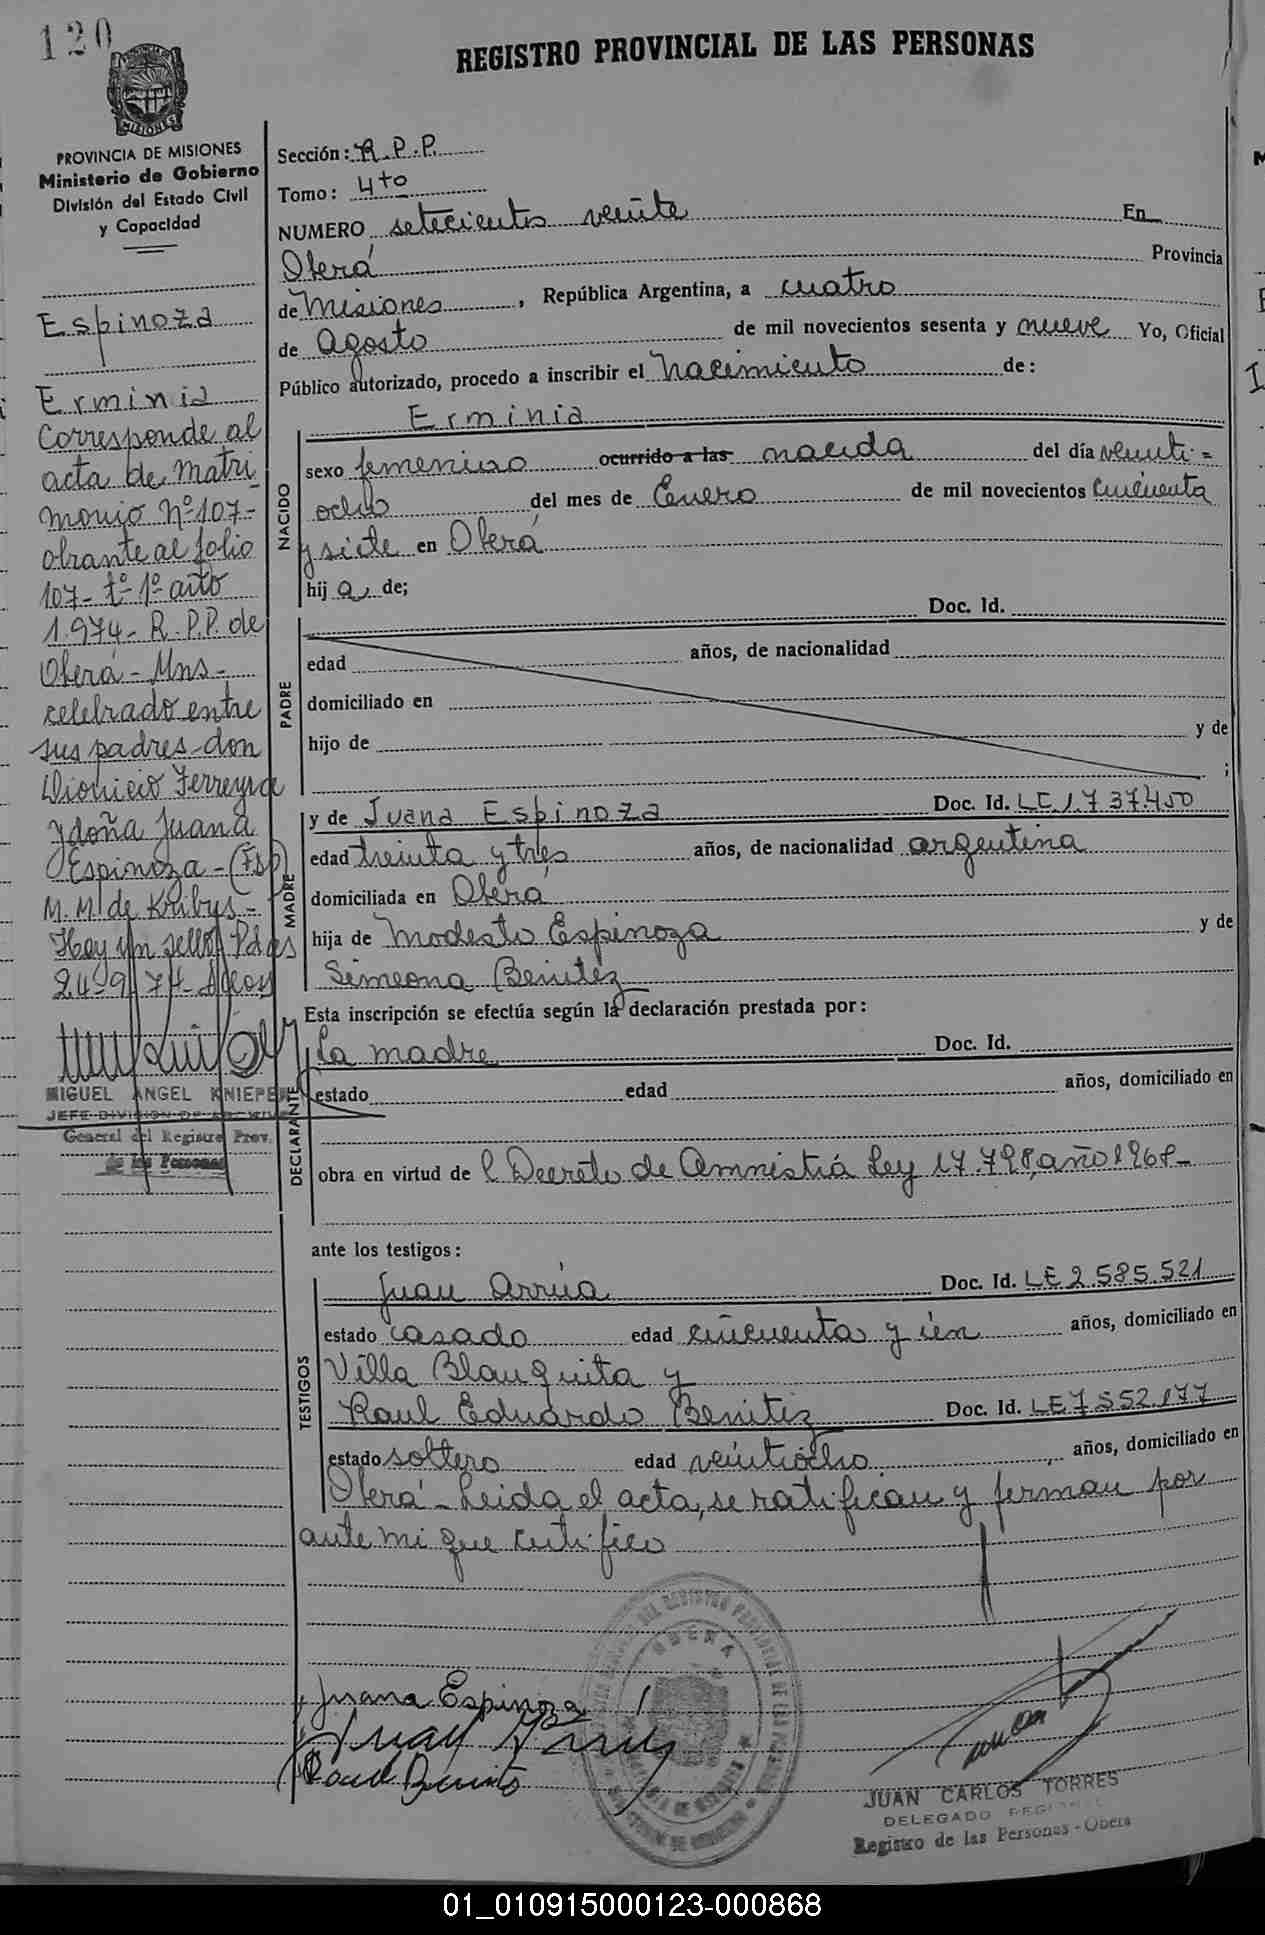 120
REGISTRO PROVINCIAL DE LAS PERSONAS
MISIONES
PROVINCIA DE MISIONES
Ministerio de Gobierno
División del Estado Civil
y Capacidad
Espinoza
Erminia
Corresponde al
acta de matri
monio Nº 107-
obrante al folio
107- tº 1º año
1.974- R.P.P. de
Oberá - Mns-
celebrado entre
sus padres don
Dionicio Ferreyra
y doña Juana
Espinoza - (Fsp)
M. M. de Kribus-
Hay un sello Pdas
24-9-74-
MIGUEL ANGEL KNIEPER
JEFE DIVISION
General del Registro Prov.
de las Personas
Sección: R.P.P.
Tomo: 4to
NUMERO setecientos veinte En
Oberá Provincia
de Misiones, República Argentina, a cuatro
de Agosto de mil novecientos sesenta y nueve Yo, Oficial
Público autorizado, procedo a inscribir el Nacimiento de:
NACIDO
Erminia
sexo femenino ocurrido a las nacida del día veinti=
ocho del mes de Enero de mil novecientos cincuenta
y siete en Oberá
hija de;
PADRE
Doc. Id.
edad años, de nacionalidad
domiciliado en
hijo de y de
;
MADRE
y de Juana Espinoza Doc. Id. LC.1.737.450
edad treinta y tres años, de nacionalidad argentina
domiciliada en Oberá
hija de Modesto Espinoza y de
Simeona Benitez
Esta inscripción se efectúa según la declaración prestada por:
DECLARANTE
La madre Doc. Id.
estado edad años, domiciliado en
obra en virtud de l Decreto de Amnistiá Ley 17.798, año 1968-
ante los testigos:
TESTIGOS
Juan Arrúa Doc. Id. LE 2.585.521
estado casado edad cincuenta y un años, domiciliado en
Villa Blanquita y
Raul Eduardo Benitez Doc. Id. LE 7.552.177
estado soltero edad veintiocho, años, domiciliado en
Oberá - Leida el acta, se ratifican y firman por
ante mi que certifico
Juana Espinoza
OBERA
JUAN CARLOS TORRES
DELEGADO
Registro de las Personas - Obera
01_010915000123-000868